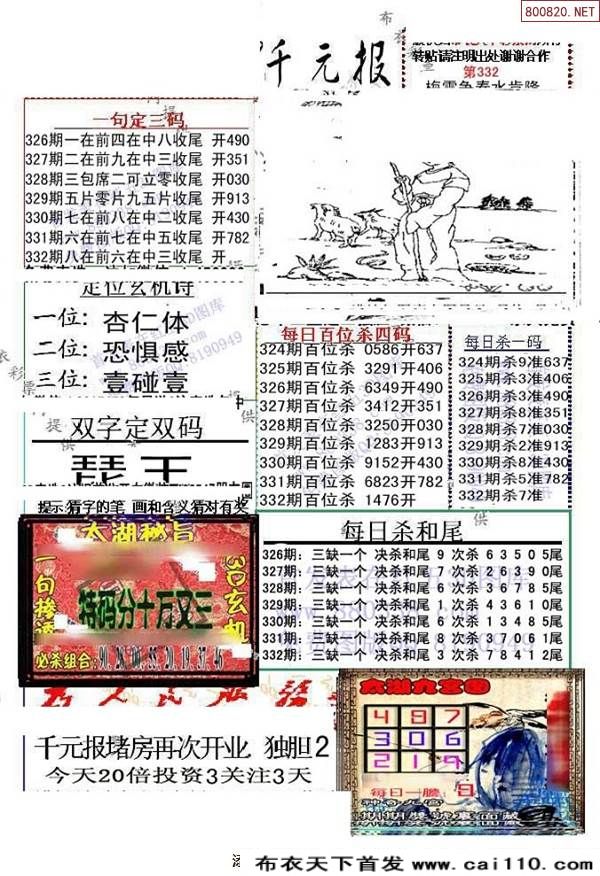 800820.NET
仟元报
转贴请注明出处谢谢合作
第332
一句定三码
326期一在前四在中八收尾 开490
327期二在前九在中三收尾 开351
328期三包席二可立零收尾 开030
329期五片零片九五片收尾 开913
330期七在前八在中二收尾 开430
331期六在前七在中五收尾 开782
332期八在前六在中三收尾 开
定位玄机诗
一位: 杏仁体
二位: 恐惧感
三位: 壹碰壹
双字定双码
提示:猜字的笔 画和含义猜对有奖
每日百位杀四码
324期百位杀 0586开637
325期百位杀 3291开406
326期百位杀 6349开490
327期百位杀 3412开351
328期百位杀 3250开030
329期百位杀 1283开913
330期百位杀 9152开430
331期百位杀 6823开782
332期百位杀 1476开
每日杀一码
324期杀9准637
325期杀3准406
326期杀3准490
327期杀8准351
328期杀7准030
329期杀2准913
330期杀6准430
331期杀5准782
332期杀7准
每日杀和尾
326期: 三缺一个 决杀和尾 9 次杀 6 3 5 0 5尾
327期: 三缺一个 决杀和尾 7 次杀 2 6 3 9 0尾
328期: 三缺一个 决杀和尾 6 次杀 3 6 7 8 5尾
329期: 三缺一个 决杀和尾 1 次杀 4 3 6 1 0尾
330期: 三缺一个 决杀和尾 6 次杀 1 3 4 8 5尾
331期: 三缺一个 决杀和尾 8 次杀 3 7 0 6 1尾
332期: 三缺一个 决杀和尾 3 次杀 7 8 4 1 2尾
太湖秘旨
3D玄机
特码分十万又三
必杀组合:
千元报堵房再次开业 独胆2
今天20倍投资3关注3天
太湖九宫图
4 8 7
3 0 6
2 1 9
每日一胆:
布衣天下首发 www.cai110.com